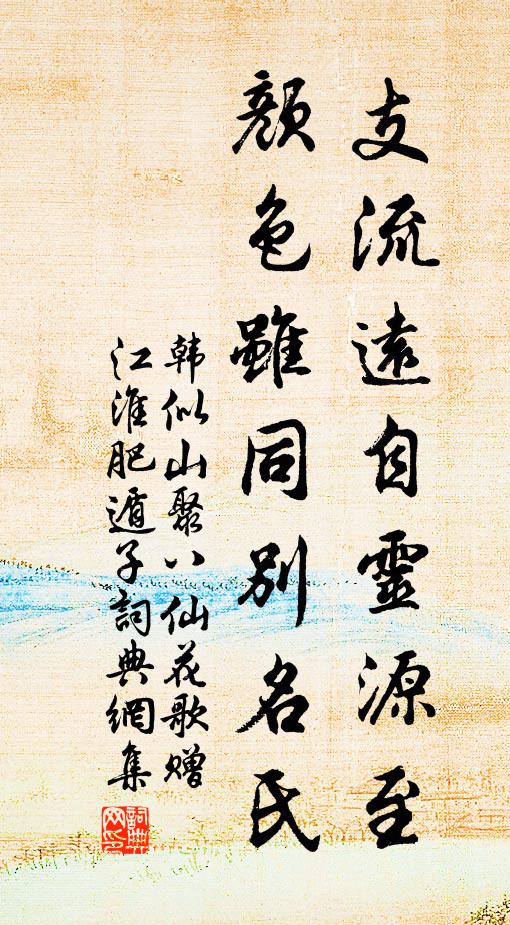 支流遠自靈源至
顏色雖同別名氏
韩似山聚八仙花歌赠
江淮肥遁子詞典網集
詞典網印